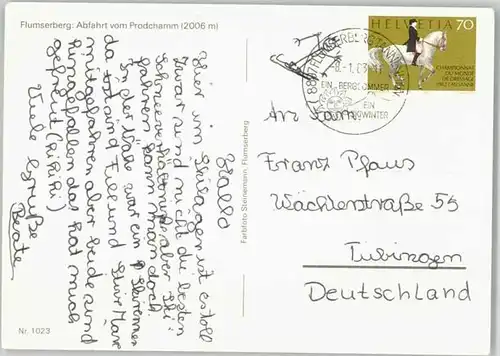 Flumserberg: Abfahrt vom Prodchamm (2006 m)
Hallo
Hier im Skilager ist es toll
Zwar sind nicht die besten
Schneeverhältnisse aber Ski
fahren kann man doch.
In der Nähe war ein Skirennen
da sind Till und
mitgefahren aber beide sind
hingefallen das hat mich
gefreut (hihihi)
Viele Grüße
Beate
Nr. 1023
Farbfoto Steinemann, Flumserberg
HELVETIA 70
CHAMPIONNAT
DU MONDE
DE DRESSAGE
1982 LAUSANNE
EIN BERGSOMMER
EIN
An Fam.
Franz Pfaus
Wächterstraße 55
Tübingen
Deutschland